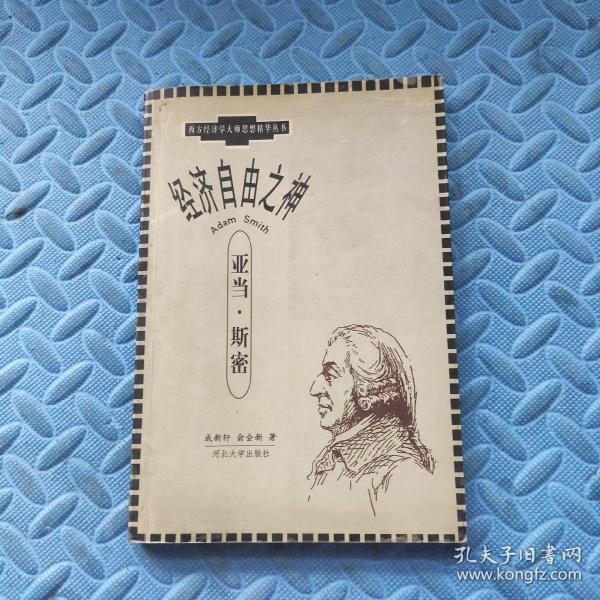 西方经济学大师思想精华丛书
经济自由之神
Adam Smith
亚当·斯密
成新轩 俞会新 著
河北大学出版社
孔夫子旧书网
www.kongfz.com